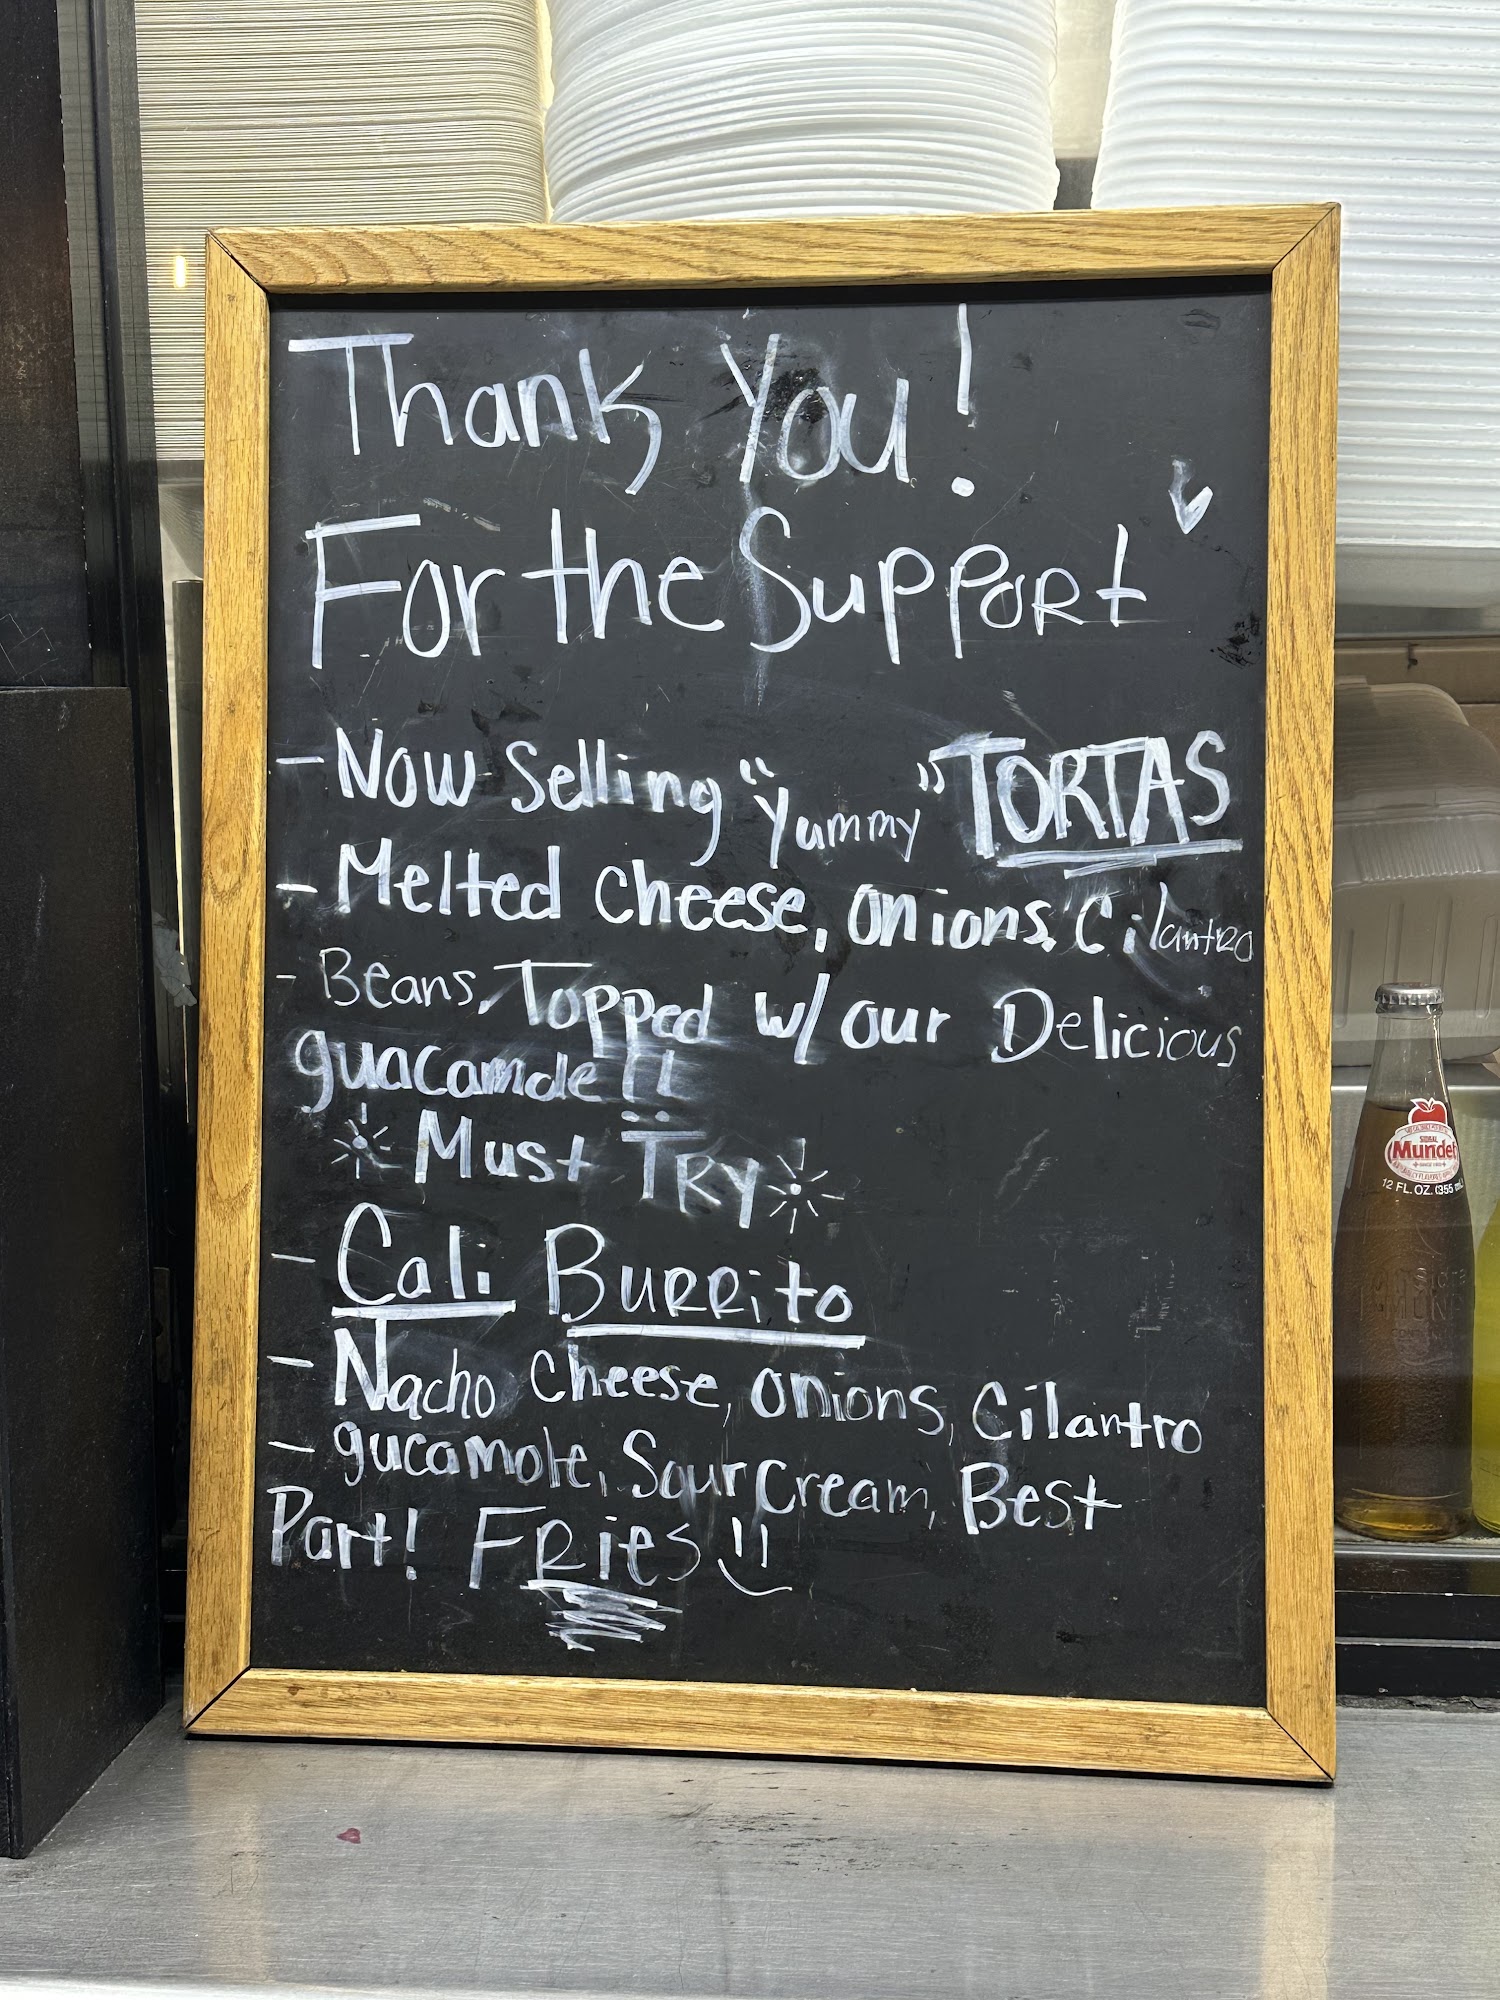 Thank You!
For the Support
- Now Selling "Yummy" TORTAS
- Melted cheese, onions, Cilantro
- Beans, Topped w/ our Delicious
guacamole!!
Must TRY
- Cali BURRito
- Nacho cheese, onions, Cilantro
- gucamole, Sour Cream, Best
Part! FRies!!
SIDRAL
Mundet
12 FL. OZ. (355 mL